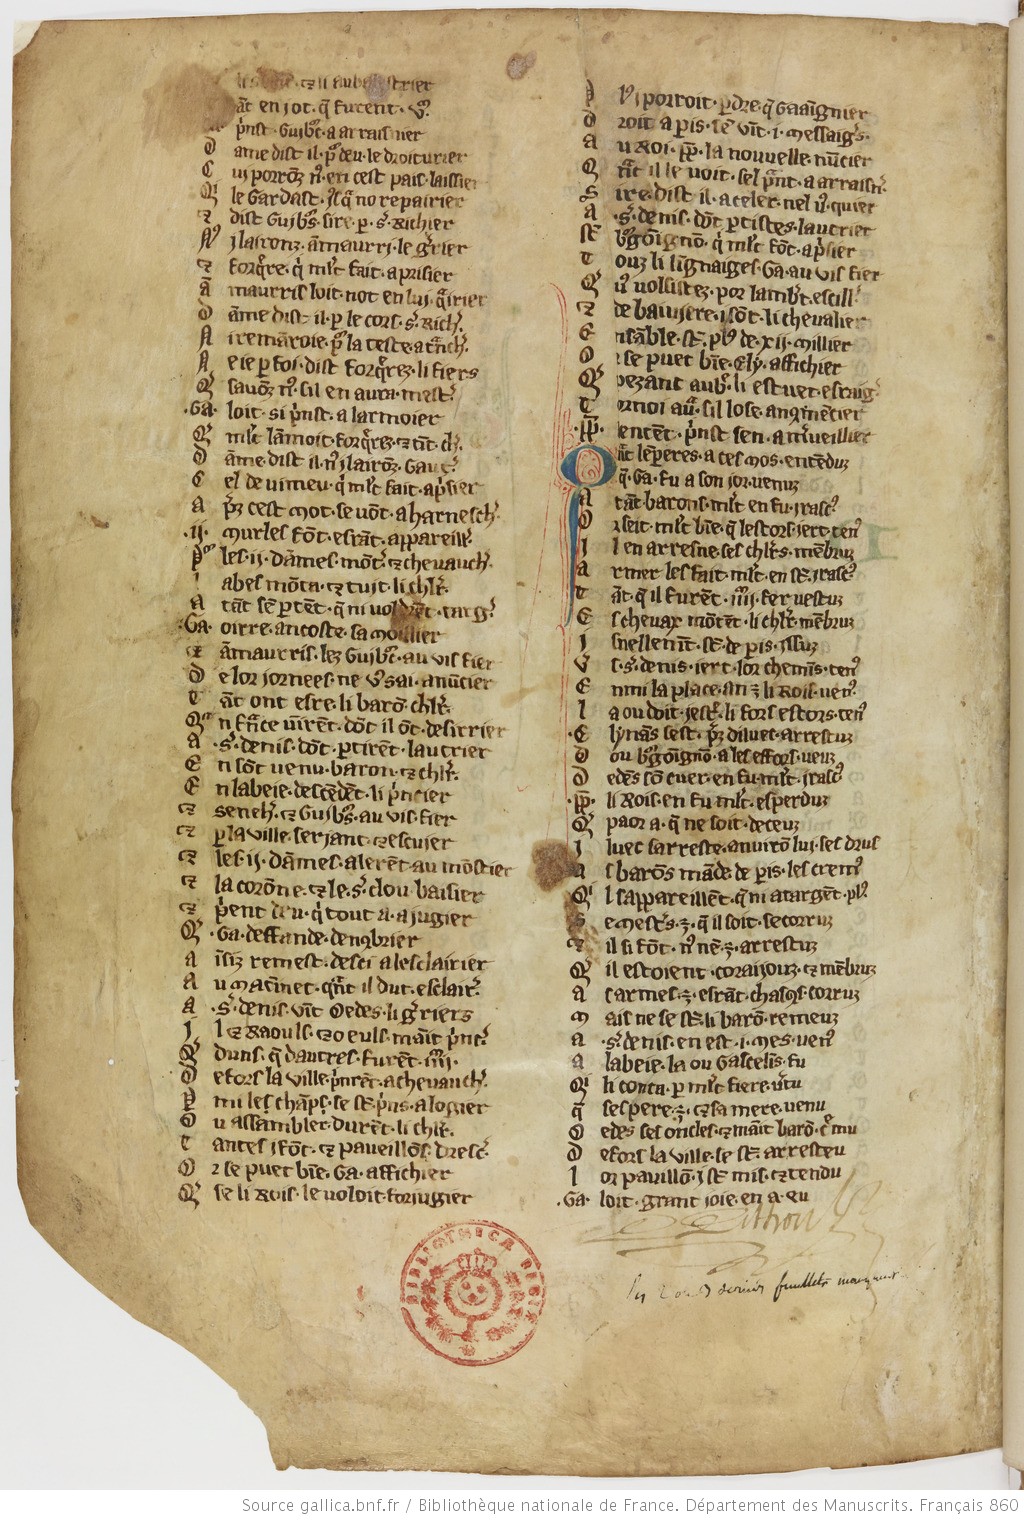 et li aubelestrier
āt en jor. q̄ furent. v.
p̓nst. Guib̓t. a arraisnier
D ame dist il. p̓ deu. le droiturier
C ui porrōz n̓. en cest pais. laissier
Q̓ le Gardast. q̓ no repairier
⁊ dist Guib̓s. sire. p. s̓. Richier
N̓ i lairouz. āmaurri. le g̓rier
⁊ forq̄re. q̓ ml̓t fait. a prisier
ā maurris loit. not en lui. q̓irier
D āme dist. il. p le cors. s̓. Rich̓.
A iremāroie. p̓ la teste. a trēch̓.
A eie p foi. dist forq̄rez. li fiers
Q̓ savōz n̓. sil en aura. mest̓.
.Ga. loit. si p̓nst. a larmoier
Q̓ ml̓t lāmoit. forq̄rez. ⁊ tāt. ch̓.
D āme. dist il. n̓ i lairōz. Gaut̓.
C el de vimeu. q̓ ml̓t fait. ap̓sier
a p̄z cest mot. se vōt. a harnesch̓.
.ij. murles fōt. esrāt. appareill̓.
P̓ les .ij. dāmes. mōt̓. ⁊ chevauch̓.
l abes mōta. ⁊ tuit. li chl̓r.
a tāt sē ptēt. q̄ ni voldrēt. targ̓.
.Ga. oirre. ancoste. sa moillier
⁊ āmaurris. lez Guib̓t. au vis fier
D e lor jornees. ne v̓ sai. anūcier
T āt ont esre. li barō. chl̓r.
Q̓ n frāce vīrēt. dōt il ōt. desirrier
a .s̓. denis. dōt. ptirēt. lautrier
E n sōt venu. baron. ⁊ chl̓r.
E n labeie. descēdēt. li p̓ncier
⁊ seneh̓. ⁊ Guib̓s. au vis. fier
⁊ p la ville. serjant. ⁊ escuier
⁊ les .ij. dāmes. alerēt. au mōstier
⁊ la corōne. ⁊ le. s̓. clou. baisier
⁊ p̓ent deu. q̓ tout a. a jugier
Q̓ .Ga. deffande. denq̓brier
a īsiz remest. desci a lesclairier
A u matinet. q̄nt il dut. esclair̓.
A .s̓. denis. vīt Oedes. li g̓riers
I l ⁊ Raouls. ⁊ oeuls. māit p̓nc̓.
Q̓ duns. q̄ dautres. furēt. .iiij.
D efors la ville. p̓nrēt. a chevauch̓.
P mi les chāps. se st̄. p̓ns. a logier
O u assāmbler. durēt. li chl̓r.
T antes i fōt. ⁊ paveillōs. dresc̓.
O r se puet bn̄e. Ga. affichier
Q̓ se li Rois. le voloit. forjugier
P l̓ i porroit. pdre. q̄ Gaaignier
D roit a pis. sē vīt. .i. messaig̓s.
A u Roi. PP. la nouvelle. nūcier
Q nāt il le voit. sel p̓nt. a arraisn̓.
S ire. dist il. a celer. nel v̓. quier
A .s̓. denis. dōt ptistes. lautrier
st̄ b̓gōignō. q̓ ml̓t fōt. ap̓sier
T ouz li līgnaiges. Ga. au vis fier
Q̓ v̓ volsistez. por lamb̓t. escill̓.
⁊ de baiviere. i sōt. li chevalier
E nsāble. st̄. pl̓ de .xij. millier
O r se puet bīe. Ely. affichier
Q̓ pezant aub̓. li estuet. esraig̓.
T ornoi aū. sil lose. anq̓mēcier
.PP. lentēt. p̓nst sen. a m̓veillier
Q āt lēperes. a ces mos. entēduz
q̄. Ga. fu a son jor. venuz
A tāt barons. ml̓t en fu. irasc̓
O r seit. ml̓t bīe. q̄ lestors. iert. ten̓
I l en arresne. ses chl̓rs. mēbruz
A rmer les fait. ml̓t. en st̄. irasc̓
T āt. q̄ il furēt. .iiij. fer vestuz
E s chevax mōtēt. li chl̓r mēbruz
I snellemīt. st̄. de pis. issuz
V s .s̓. denis. iert. lor chemīs. ten̓
E nmi la place. an ʒ li Rois. ven̓
L a ou doit. jest̓. li fors estors. ten̓
.E. lynās sest. p̄z diluec. arrestuz
D ou b̓gōignō. a les effors. veuz
D edēs sō cuer. en fu. ml̓t. irasc̓
.PP. li Rois. en fu ml̓t. esperduz
Q̓ paor a. q̄ ne soit. deceuz
I luec sarreste. anvirō lui. ses drus
A s barōs māde. de pis. les crem̓
Q̓ l sappareillēt. q̄ ni atargēt. pl̓
S e mest̓s. ʒ. q̄ il soit. secorruz
⁊ il si fōt. n̓ nē. ʒ. arrestuz
Q̓ il estoient. coraijouz. ⁊ mēbruz
A s armes. ʒ. esrāt. chasq̓s. corruz
M ais ne se st̄. li barō. remeuz
A .s̓. denis. en est .i. mes. ven̓
A labeie. la ou Gascelīs. fu
Q̓ li conta. p ml̓t fiere. v̓tu
q̄ ses pere. ʒ. ⁊ sa mere. venu
O edes ses ōncles. ⁊ māit barō. c̓mu
D efors la ville. se st̄. arresteu
L or pavillō. i st̄. mis. ⁊ tendu
.Ga. loit. grant joie. en a. eu
BIBLIOTHECA REGIA
derniers feuillets manquent
Source gallica.bnf.fr / Bibliothèque nationale de France. Département des Manuscrits. Français 860